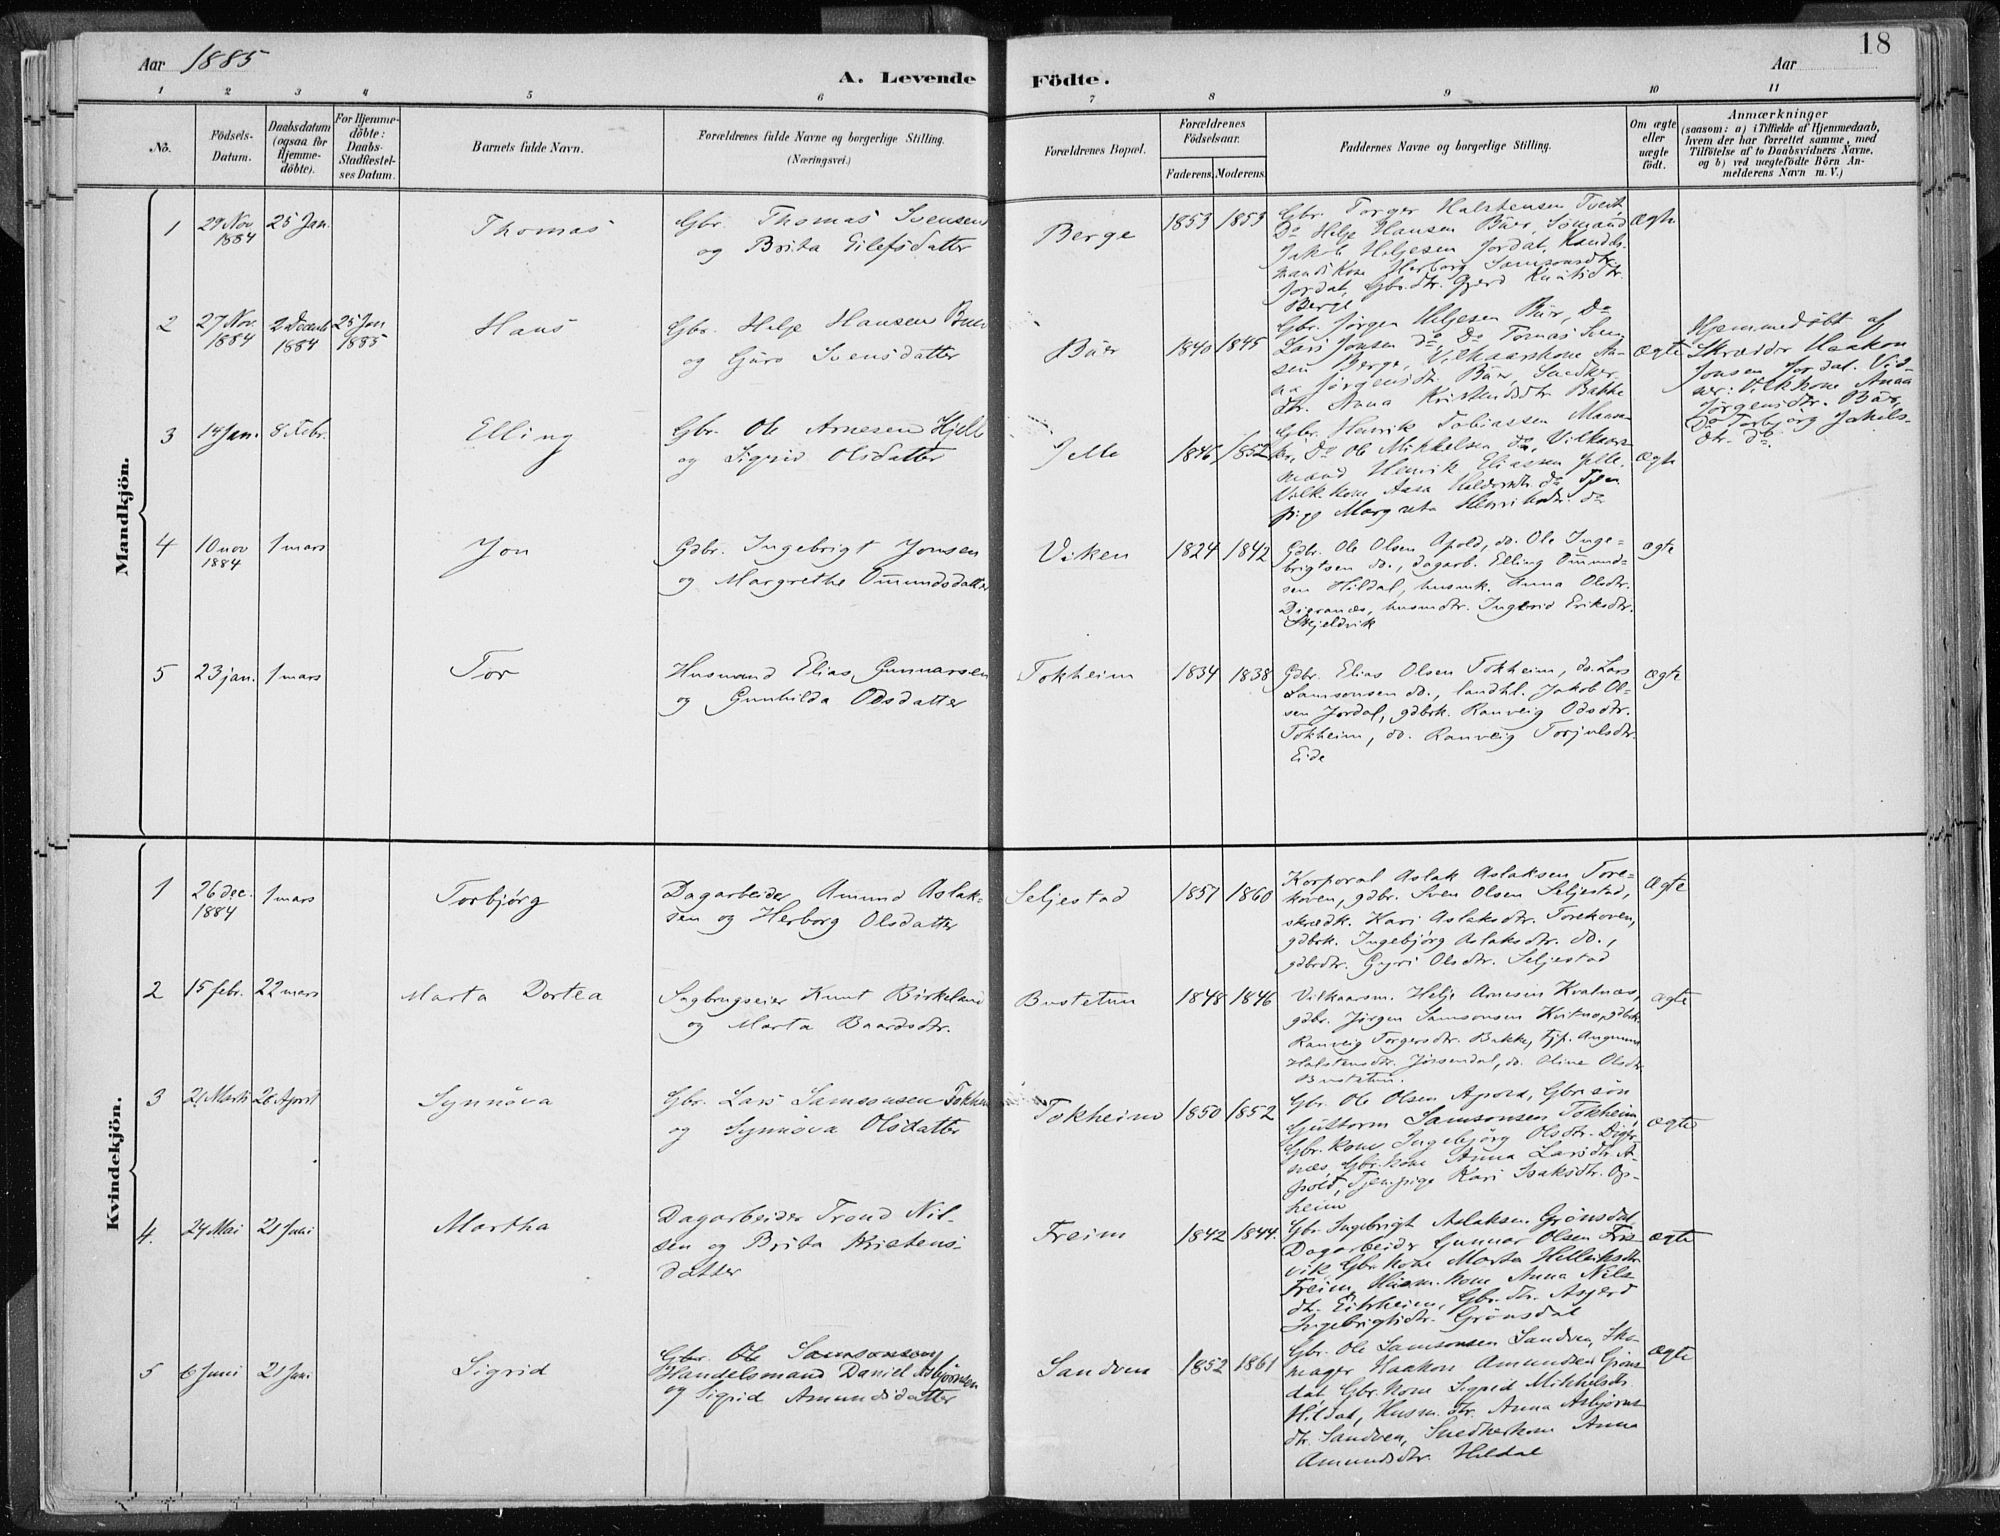 Aar 1885
A. Levende Födte.
Aar
18
1 2 3 4 5 6 7 8 9 10 11
No.
Födsels-Datum.
Daabsdatum (ogsaa for Hjemmedöbte).
For Hjemmedöbte: Daabs-Stadfæstelses Datum.
Barnets fulde Navn.
Forældrenes fulde Navne og borgerlige Stilling.
(Næringsvei.)
Forældrenes Bopæl.
Forældrenes Födselsaar.
Faderens. Moderens.
Faddernes Navne og borgerlige Stilling.
Om ægte eller uægte födt.
Anmærkninger
(saasom: a) i Tilfælde af Hjemmedaab, hvem der har forrettet samme, med Tilföielse af to Daabsvidners Navne, og b) ved uægtefödte Börn Anmelderens Navn m. V.)
Mandkjön.
1 29 Nov 1884 25 Jan. Thomas
Gbr. Thomas Svensen
og Brita Eilefsdatter
Berge 1853 1853
Gbr. Torger Halstensen Tveit
Do Helje Hansen Büer, Sömand
Jakob Heljesen Jordal, Kaands-
mandskone Herborg Samsonsdtr.
Jordal, Gbr.dtr. Gjerd Knutsdtr.
Berge
ægte
2 27 Nov. 1884 2 Decemb 1884 25 Jan 1885 Hans
Gbr. Helje Hansen Buer
og Guro Svensdatter
Büer 1840 1845
Gbr. Jörgen Heljesen Büer, Do
Lars Jonsen do, Do Tomas Sven-
sen Berge, Vilkaarskone An-
na Jörgensdtr. Büer, Snedker
dtr. Anna Kristensdtr Bakke
ægte
Hjemmedöbt af
Skrædder Haakon
Jonsen Jordal. Vid-
ner: Vilkkone Anna
Jörgensdtr. Büer,
Do Torbjörg Jakobs-
dtr. do.
3 14 Jan. 8 Febr. Elling
Gbr. Ole Arnesen Hjelle
og Sigrid Olsdatter
Jelle 1846 1852
Gbr. Henrik Tobiassen
Do Ole Mikkelsen do, Vilkaars-
mand Henrik Eliassen Jelle,
Vilk.kone Aasa Haldorsdtr. do Tjen
pige Margreta Henriksdtr. do
ægte
4 10 nov 1884 1 mars Jon
Gdbr. Ingebrigt Jonsen
og Margrethe Omundsdatter
Viken 1824 1842
Gdbr. Ole Olsen Apold, do. Ole Inge-
brigtsen do., dagarb. Elling Omund-
sen Hildal, husmk. Anna Olsdtr.
Digranæs, husmdtr. Ingerid Eriksdtr.
Skjeldvik
ægte
5 23 jan. 1 mars Tor
Husmand Elias Gunnarsen
og Gunhilda Odsdatter
Tokheim 1834 1838
Gdbr. Elias Olsen Tokheim, do. Lars
Samsonsen do., landhl. Jakob Ol-
sen Jordal, gdbrk. Ranveig Odsdtr.
Tokheim, do. Ranveig Torjulsdtr.
Eide
ægte
Kvindekjön.
1 26 dec. 1884 1 mars Torbjørg
Dagarbeider Amund Aslak-
sen og Herborg Olsdatter
Seljestad 1857 1860
Korporal Aslak Aslaksen Tore-
koven, gdbr. Sven Olsen Seljestad,
skrædk. Kari Aslaksdtr. Torekoven,
gdbrk. Ingebjørg Aslaksdtr. do.,
gdbrdtr. Gyri Olsdtr. Seljestad
ægte
2 15 febr. 22 mars Marta Dortea
Sagbrugseier Knut Birkeland
og Marta Baardsdtr.
Bustetun 1848 1846
Vilkaarsm. Helje Arnesen Kvalnæs,
gdbr. Jørgen Samsonsen Kvitno, gdbrk.
Ranveig Torgersdtr. Bakke, tjp.
Halstensdtr. Jøssendal, do. Oline Olsdtr.
Bustetun.
ægte
3 21 Marts 26 April Synnöva
Gbr. Lars Samsonsen Tokheim
og Synnöva Olsdatter
Tokheim 1850 1852
Gbr. Ole Olsen Apold, Gbr.sön
Guttorm Samsonsen Tokheim,
Gbr.kone Ingebjörg Olsdtr. Digr-
næs, Gbr.kone Anna Larsdtr. A-
pold, Tjenpige Kari Isaksdtr. Op-
heim
ægte
4. 24 Mai 21 Juni Martha
Dagarbeider Trond Nil-
sen og Brita Kristens-
datter
Freim 1842 1844.
Gbr. Ingebrigt Aslaksen Grönsdal,
Dagarbeider Gunnar Olsen
vik, Gbr.kone Marta Helleiksdtr
Freim, Husm.kone Anna Nils-
dtr. Eitrheim, Gbr.dtr. Asgerd
Ingebrigtsdtr. Grönsdal
ægte
5 6 Juni 21 Juni Sigrid
Gbr. Ole Samsonsen
Handelsmand Daniel Asbjörnsen
og Sigrid Amundsdatter
Sandven 1852 1861
Gbr. Ole Samsonsen Sandven, Sko-
mager Haakon Amundsen Gröns-
dal, Gbr.kone Sigrid Mikkelsdtr
Hildal, Husm.dtr. Anna Asbjörns-
dtr. Sandven, Snedkerkone Anna
Amundsdtr. Hildal
ægte